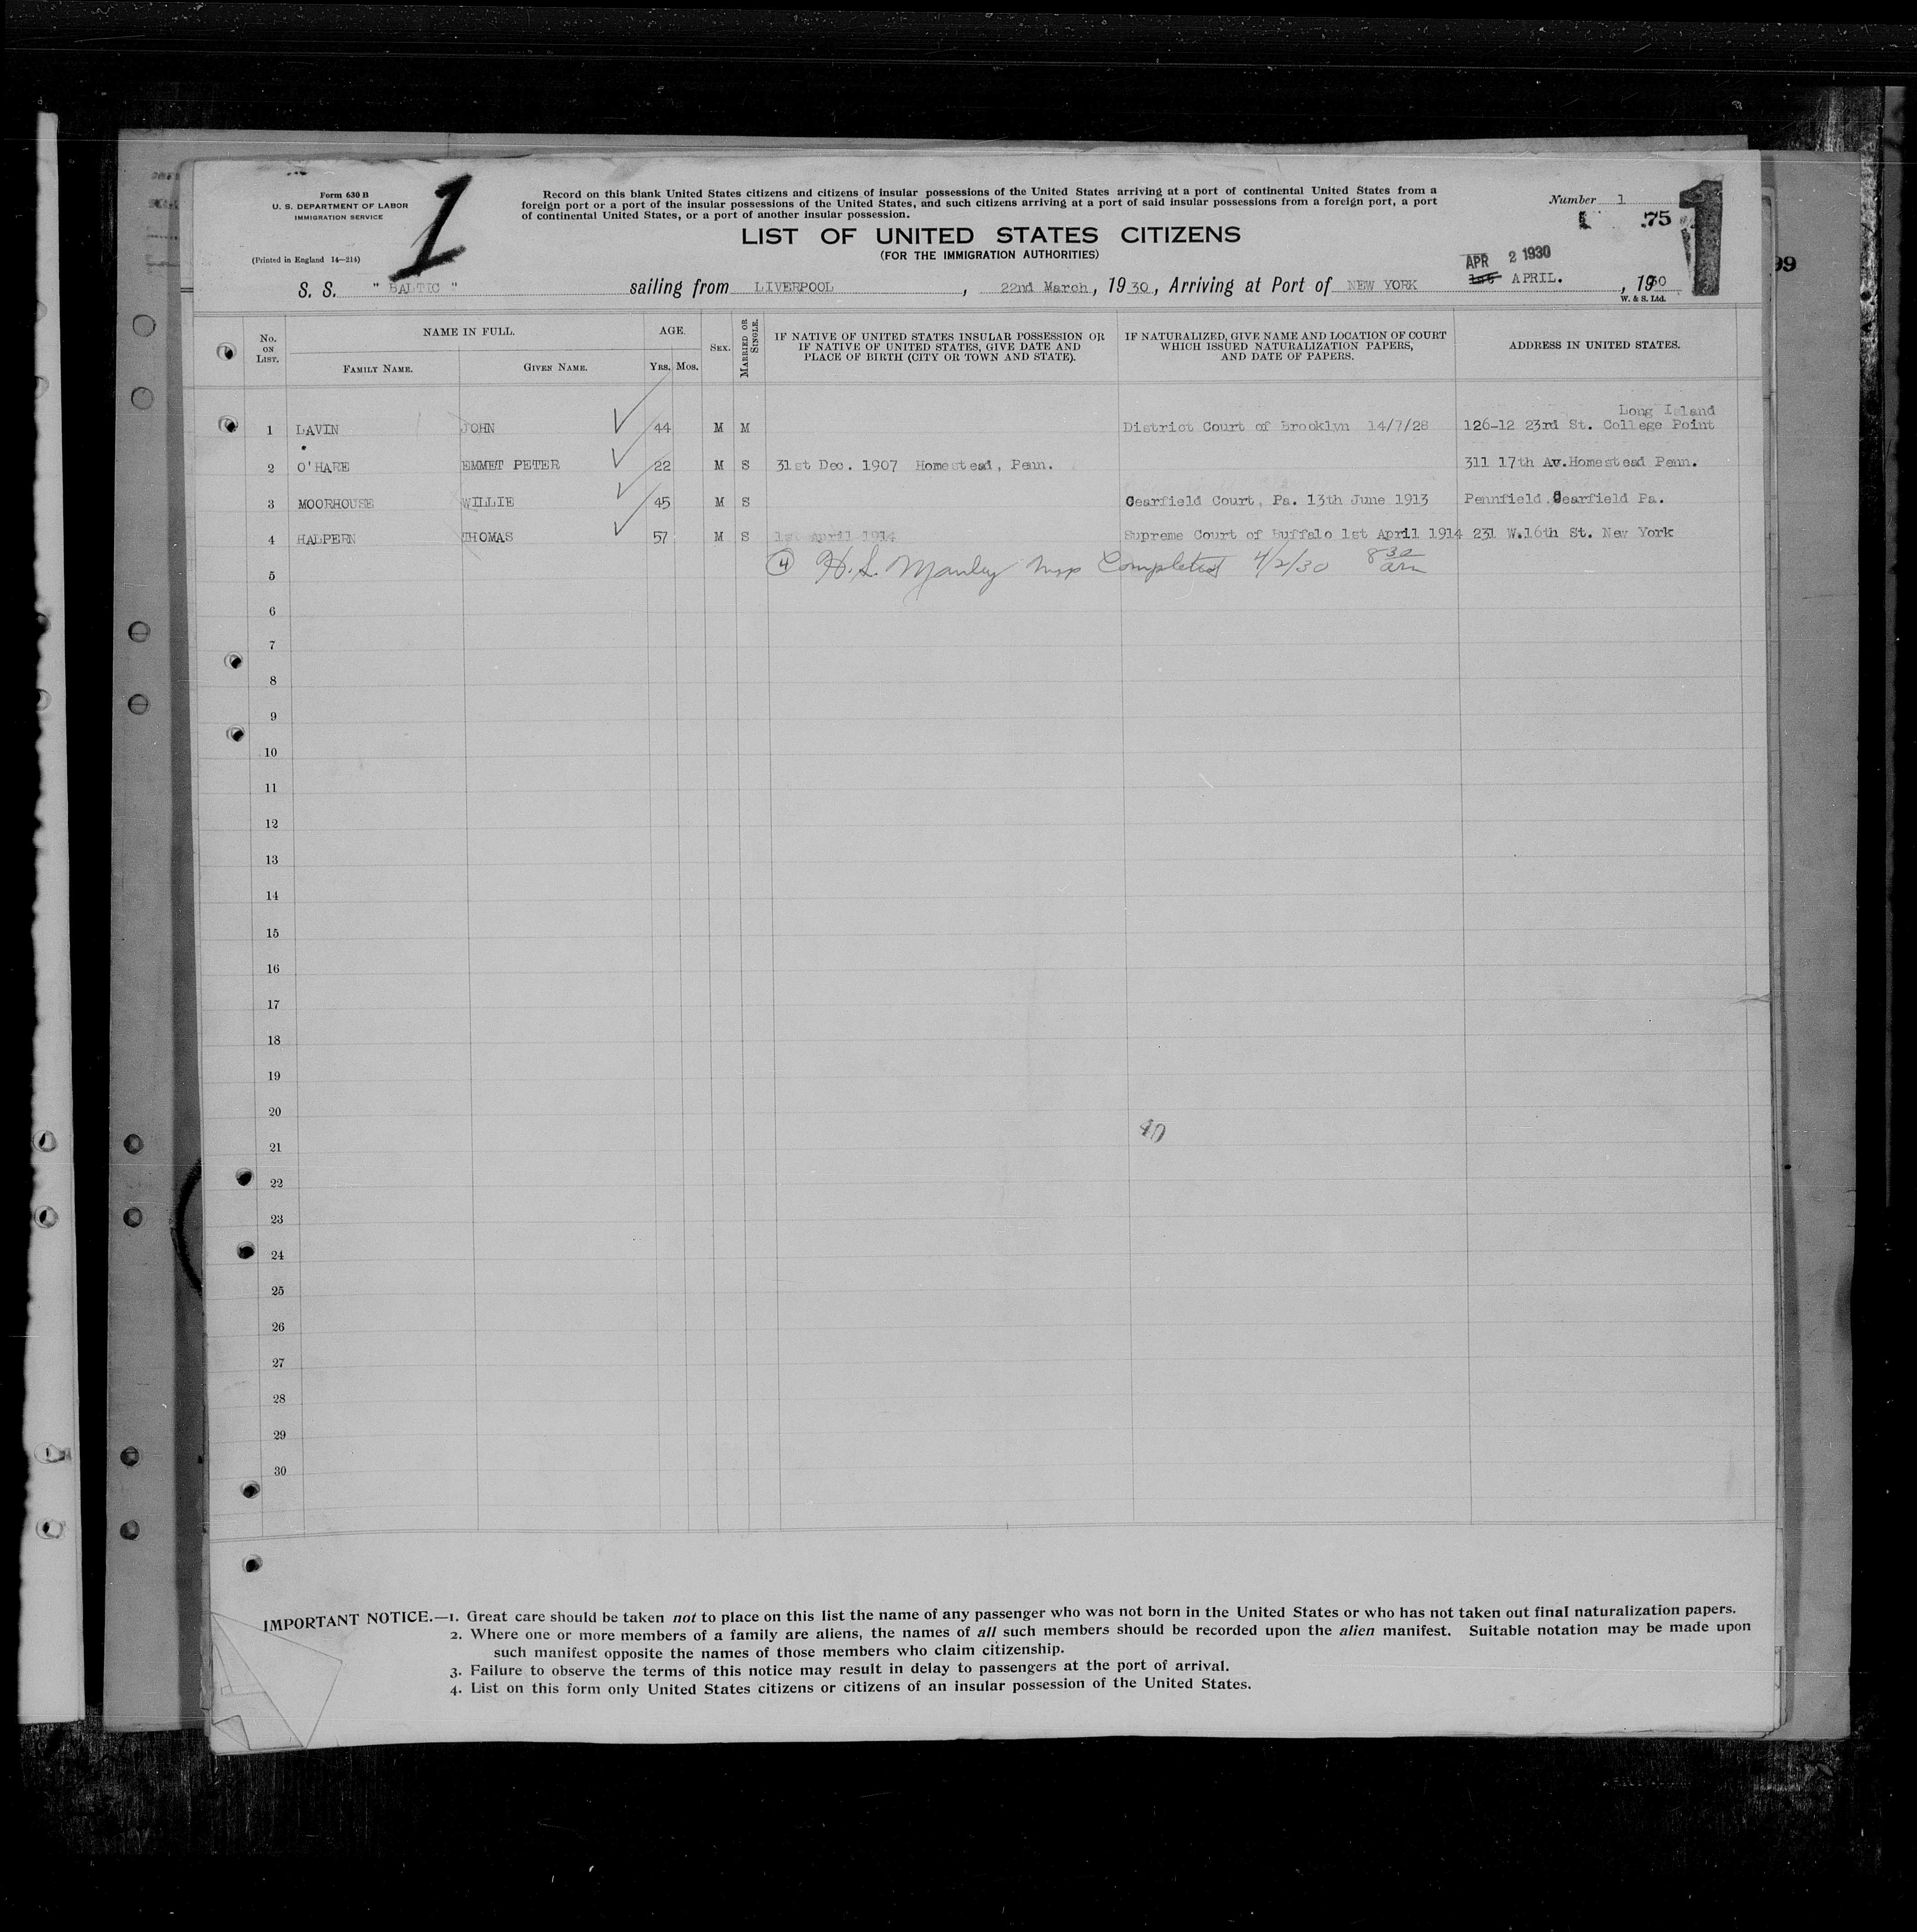 Form 630 B
U. S. DEPARTMENT OF LABOR
IMMIGRATION SERVICE
(Printed in England 14—214)
1
Record on this blank United States citizens and citizens of insular possessions of the United States arriving at a port of continental United States from a
foreign port or a port of the insular possessions of the United States, and such citizens arriving at a port of said insular possessions from a foreign port, a port
of continental United States, or a port of another insular possession.
Number 1
75
1
99
LIST OF UNITED STATES CITIZENS
(FOR THE IMMIGRATION AUTHORITIES)
APR 2 1930
S. S. " BALTIC " sailing from LIVERPOOL, 22nd March, 1930, Arriving at Port of NEW YORK 1st APRIL., 1930
W. & S. Ltd.
No. ON LIST. NAME IN FULL. FAMILY NAME. GIVEN NAME. AGE. YRS. MOS. SEX. MARRIED OR SINGLE. IF NATIVE OF UNITED STATES INSULAR POSSESSION OR IF NATIVE OF UNITED STATES, GIVE DATE AND PLACE OF BIRTH (CITY OR TOWN AND STATE). IF NATURALIZED, GIVE NAME AND LOCATION OF COURT WHICH ISSUED NATURALIZATION PAPERS, AND DATE OF PAPERS. ADDRESS IN UNITED STATES.
Long Island
1 LAVIN JOHN 44 M M District Court of Brooklyn 14/7/28 126-12 23rd St. College Point
2 O'HARE EMMET PETER 22 M S 31st Dec. 1907 Homestead, Penn. 311 17th Av. Homestead Penn.
3 MOORHOUSE WILLIE 45 M S Cearfield Court, Pa. 13th June 1913 Pennfield Cearfield Pa.
4 HALPERN THOMAS 57 M S 1st April 1914 Supreme Court of Buffalo 1st April 1914 231 W.16th St. New York
5 4 H. S. Manley Insp Completed 4/2/30 8 30 am
6
7
8
9
10
11
12
13
14
15
16
17
18
19
20
21
22
23
24
25
26
27
28
29
30
IMPORTANT NOTICE.—1. Great care should be taken not to place on this list the name of any passenger who was not born in the United States or who has not taken out final naturalization papers.
2. Where one or more members of a family are aliens, the names of all such members should be recorded upon the alien manifest. Suitable notation may be made upon
such manifest opposite the names of those members who claim citizenship.
3. Failure to observe the terms of this notice may result in delay to passengers at the port of arrival.
4. List on this form only United States citizens or citizens of an insular possession of the United States.